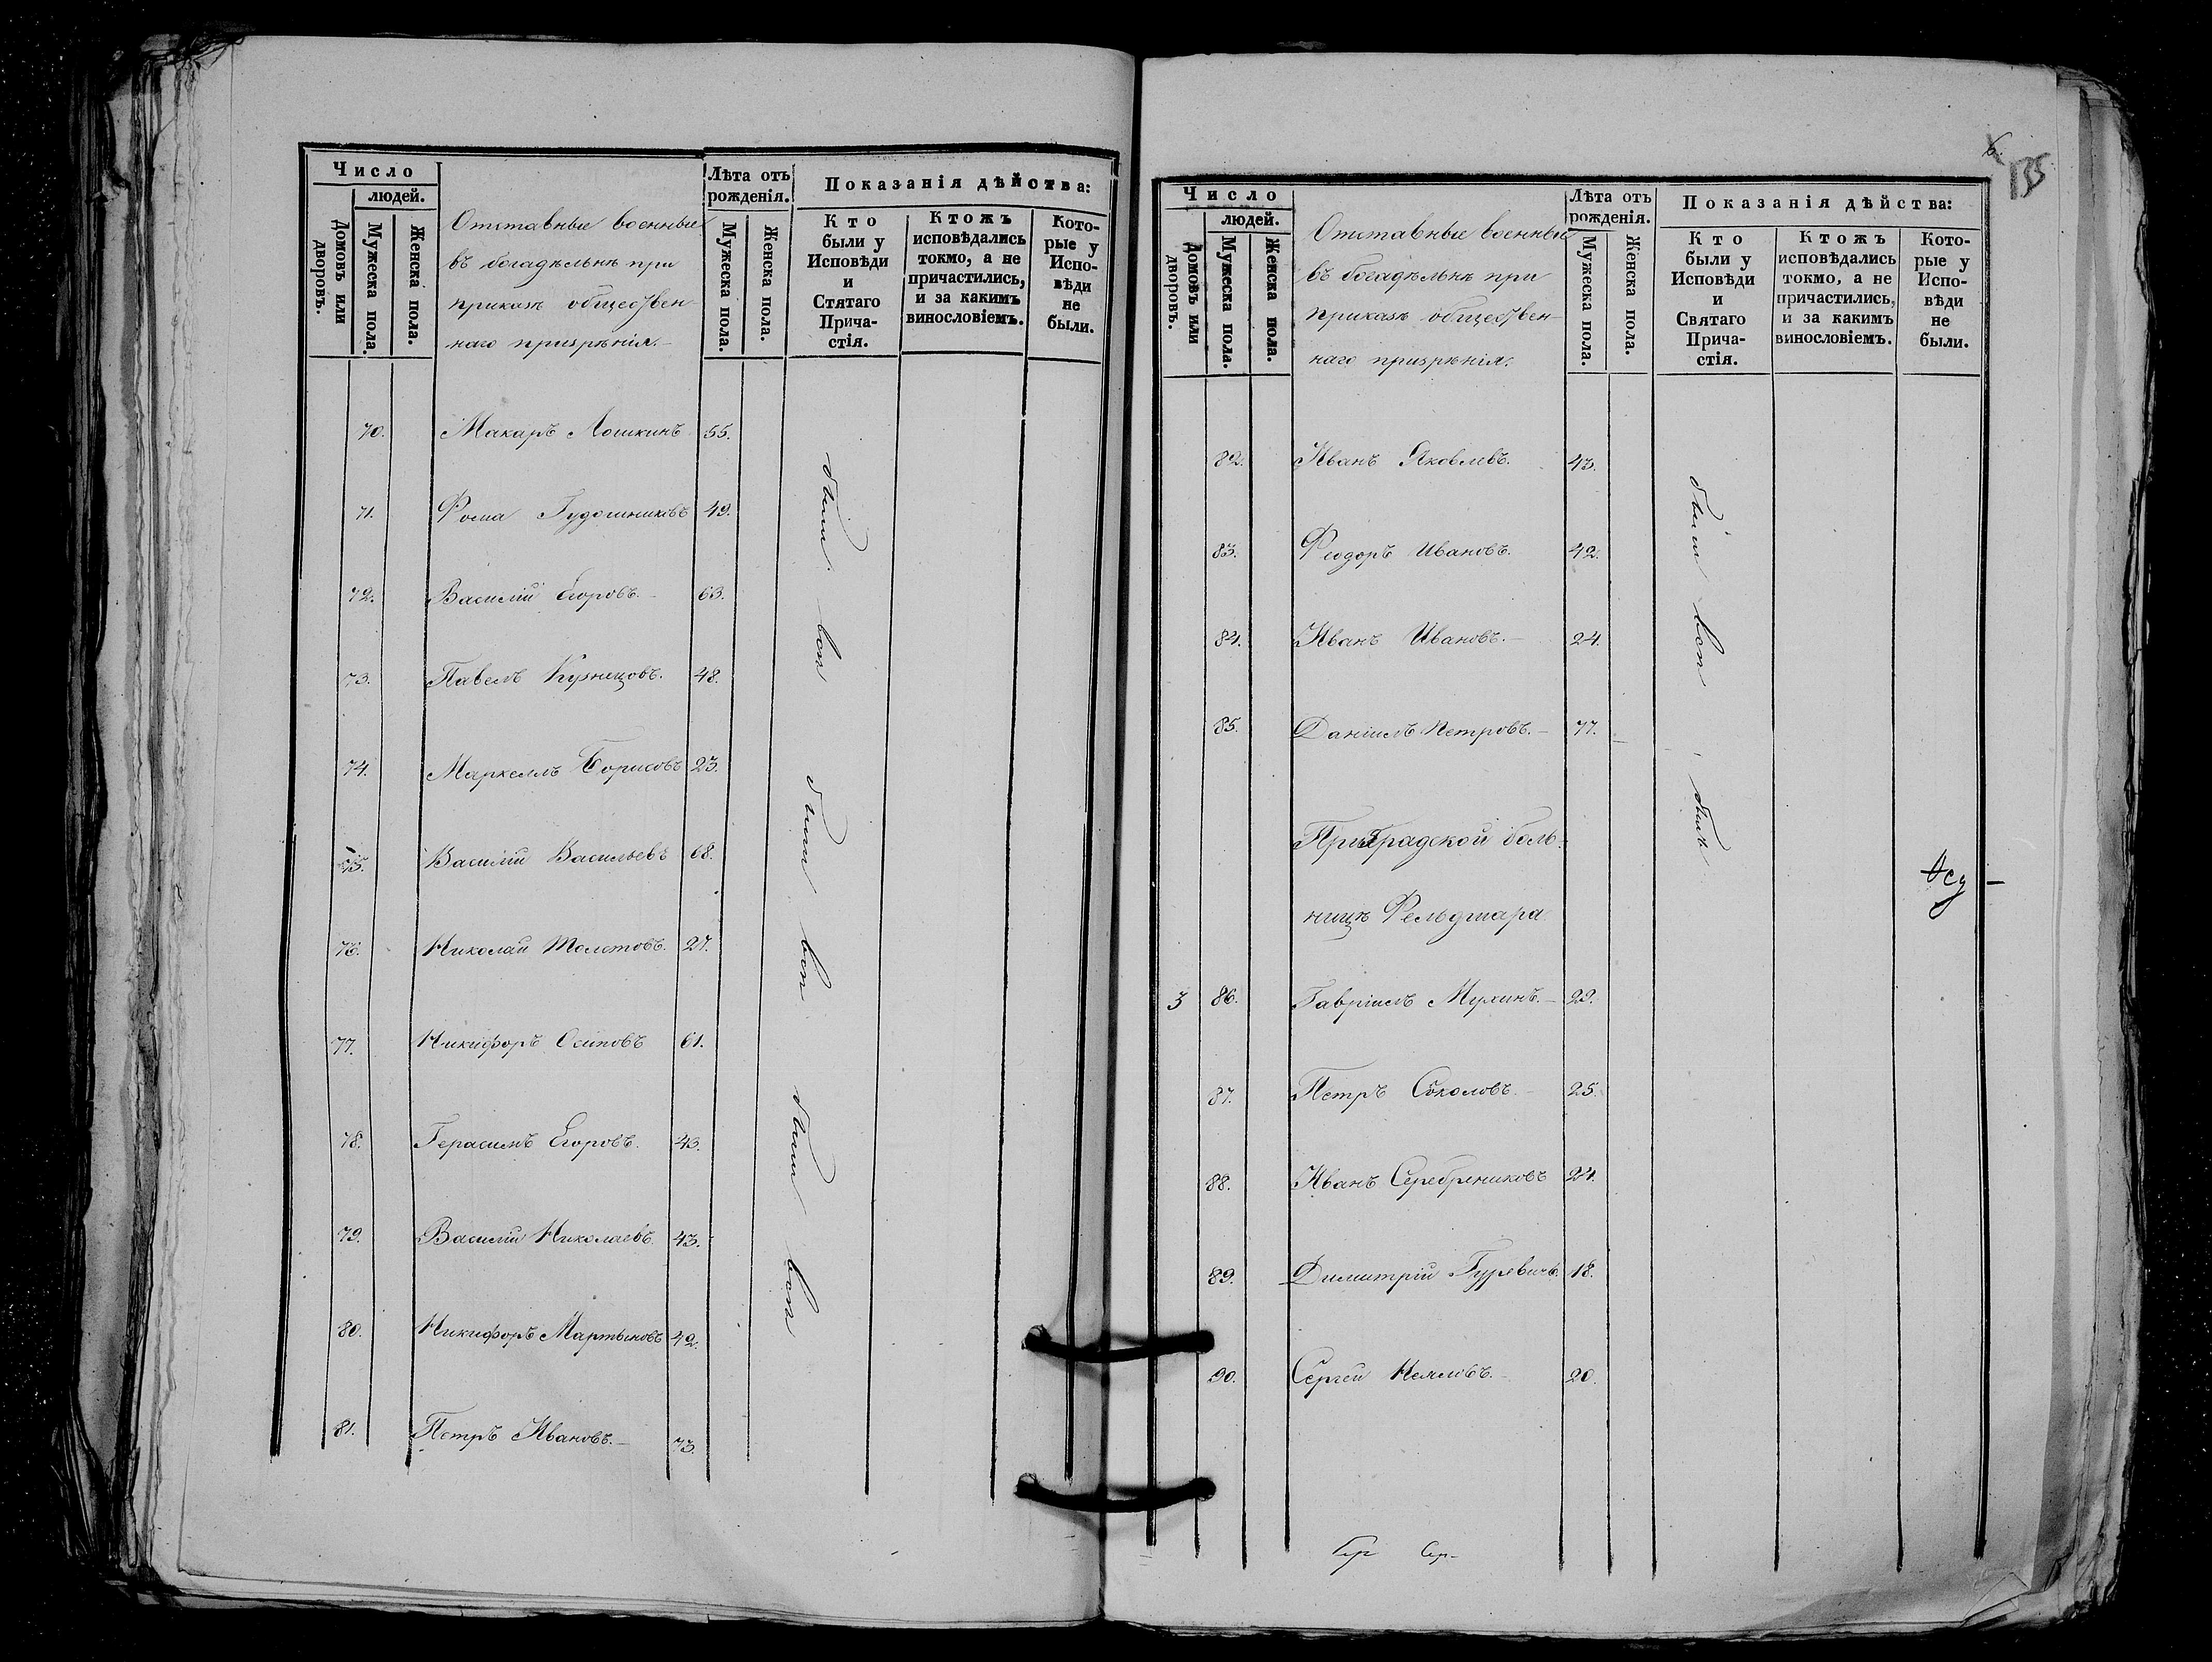 Число
людей.
Домовъ или дворовъ.
Мужеска пола.
Женска пола.
Отставные военные
въ богадѣльнѣ при
приказѣ обществен-
наго призрѣнія.
Лѣта отъ
рожденія.
Мужеска пола.
Женска пола.
Показанія дѣйства:
Кто
были у
Исповѣди
и
Стятаго
Прича-
стія.
Ктожъ
исповѣдались
токмо, а не
причастились,
и за какимъ
винословіемъ.
Кото-
рые у
Испо-
вѣди
не
были.
70. Макаръ Лошкинъ 55.
71. Фома Гудошниковъ 49.
72. Василій Егоровъ. 63.
73. Павелъ Кузнецовъ. 48.
74. Маркеллъ Борисовъ 23.
75. Василій Васильевъ 68.
76. Николай Толстовъ. 27.
77. Никифоръ Осиповъ 61.
78. Герасимъ Егоровъ. 43.
79. Василій Николаевъ. 43.
80. Никифоръ Мартыновъ 42.
81. Петръ Ивановъ. 73.
были
были
были
6.
135
Число
людей.
Домовъ или дворовъ.
Мужеска пола.
Женска пола.
Отставные военные
въ богадѣльнѣ при
приказѣ обществен-
наго призрѣнія.
Лѣта отъ
рожденія.
Мужеска пола.
Женска пола.
Показанія дѣйства:
Кто
были у
Исповѣди
и
Святаго
Прича-
стія.
Ктожъ
исповѣдались
токмо, а не
причастились,
и за какимъ
винословіемъ.
Кото-
рые у
Испо-
вѣди
не
были.
82. Иванъ Яковлевъ. 43.
83. Феодоръ Ивановъ. 42.
84. Иванъ Ивановъ. 24.
85. Даніилъ Петровъ. 77.
были
При Градской боль-
ницѣ Фельдшера
3 86. Гавріилъ Мухинъ. 22.
87. Петръ Соколовъ. 25.
88. Иванъ Серебрениковъ 24.
89. Димитрій Гуревичъ. 18.
90. Сергей 20.